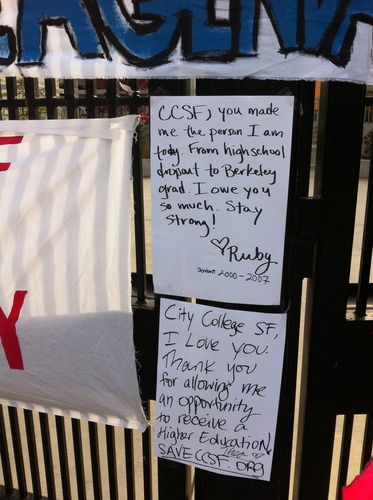 CCSF, you made
me the person I am
tody. From highschool
dropout to Berkeley
grad. I owe you
so much. Stay
strong!
♡Ruby
Student 2000-2007
City College SF,
I Love you.
Thank you
for allowing me
an opportunity
to receive a
Higher Education.
SAVECCSF.ORG